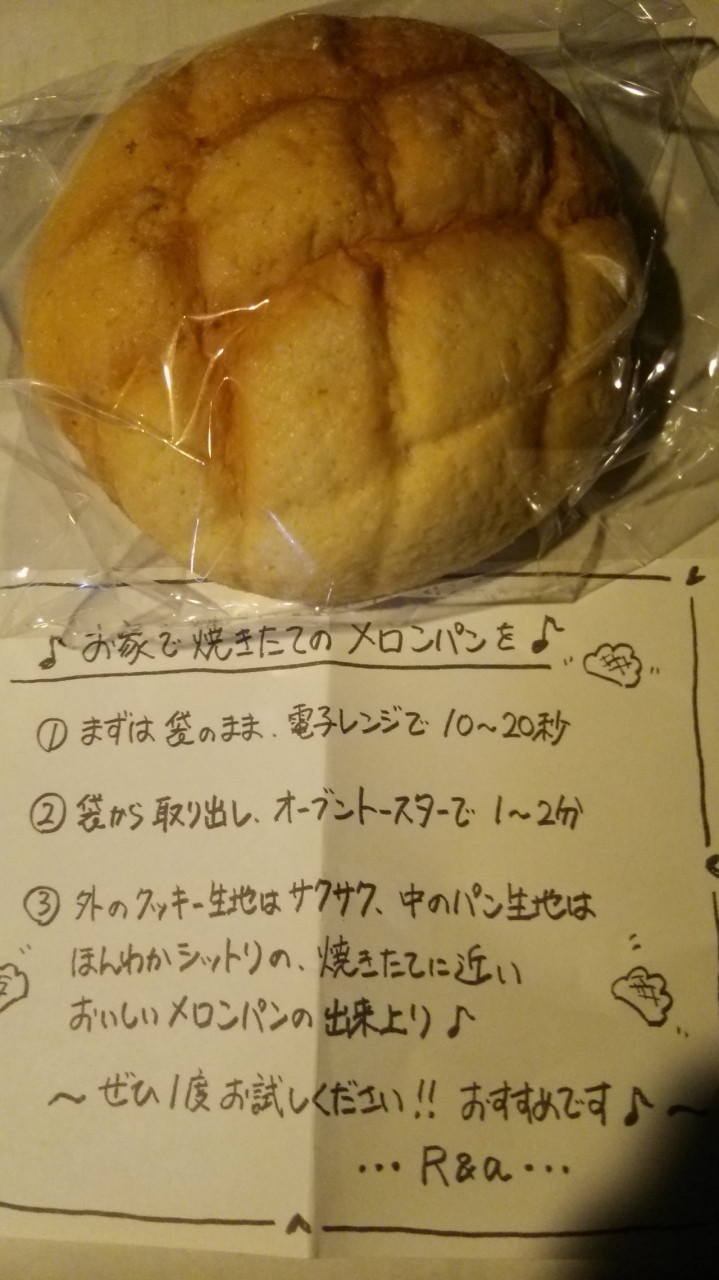 ♪お家で焼きたてのメロンパンを♪
① まずは袋のまま、電子レンジで 10〜20秒
② 袋から取り出し、オーブントースターで 1〜2分
③ 外のクッキー生地はサクサク、中のパン生地は
ほんわかシットリの、焼きたてに近い
おいしいメロンパンの出来上り♪
〜ぜひ1度お試しください!! おすすめです♪〜
…R&a…